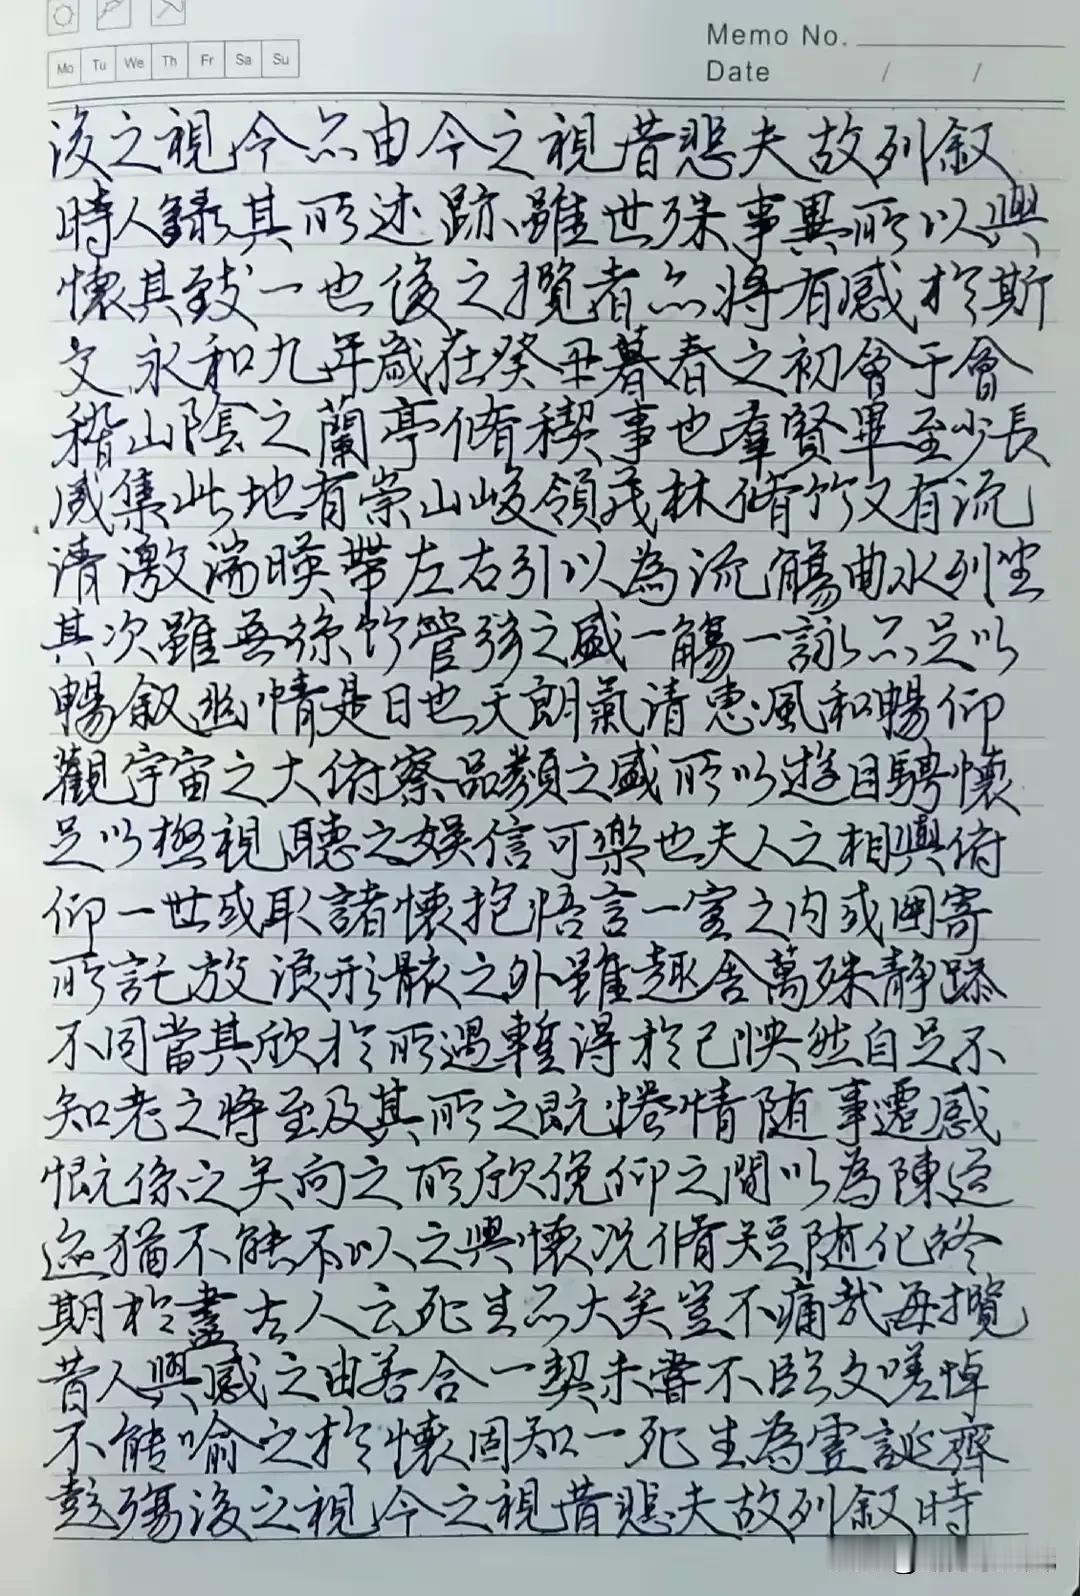 Memo No.
Mo Tu We Th Fr Sa Su
Date / /
後之視今亦由今之視昔悲夫故列叙
時人錄其所述跡雖世殊事異所以興
懷其致一也後之攬者亦將有感於斯
文永和九年歲在癸丑暮春之初會于會
稽山陰之蘭亭脩稧事也羣賢畢至少長
咸集此地有崇山峻領茂林脩竹又有流
清激湍暎帶左右引以為流觴曲水列坐
其次雖無絲竹管弦之盛一觴一詠亦足以
暢叙幽情是日也天朗氣清惠風和暢仰
觀宇宙之大俯察品類之盛所以遊目騁懷
足以極視聽之娛信可樂也夫人之相與俯
仰一世或取諸懷抱悟言一室之內或因寄
所託放浪形骸之外雖趣舍萬殊靜躁
不同當其欣於所遇暫得於己怏然自足不
知老之將至及其所之既惓情隨事遷感
慨係之矣向之所欣俛仰之間以為陳迹
猶不能不以之興懷況脩短隨化終
期於盡古人云死生亦大矣豈不痛哉每攬
昔人興感之由若合一契未嘗不臨文嗟悼
不能喻之於懷固知一死生為虛誕齊
彭殤後之視今之視昔悲夫故列叙時